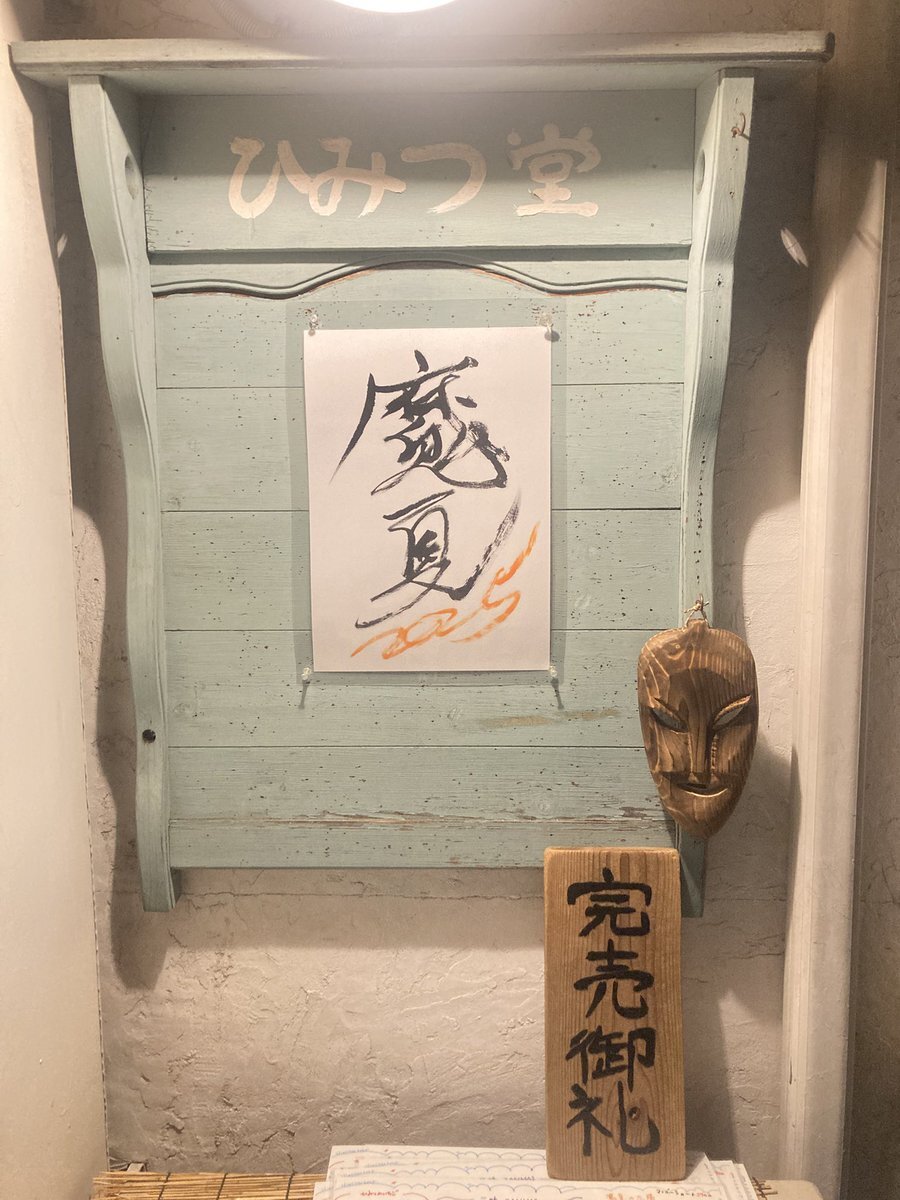 ひみつ堂
魔夏
2025
完売御礼